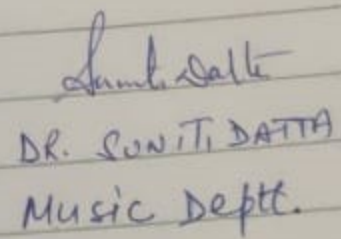 Suniti Datta
DR. SUNITI DATTA
Music Deptt.